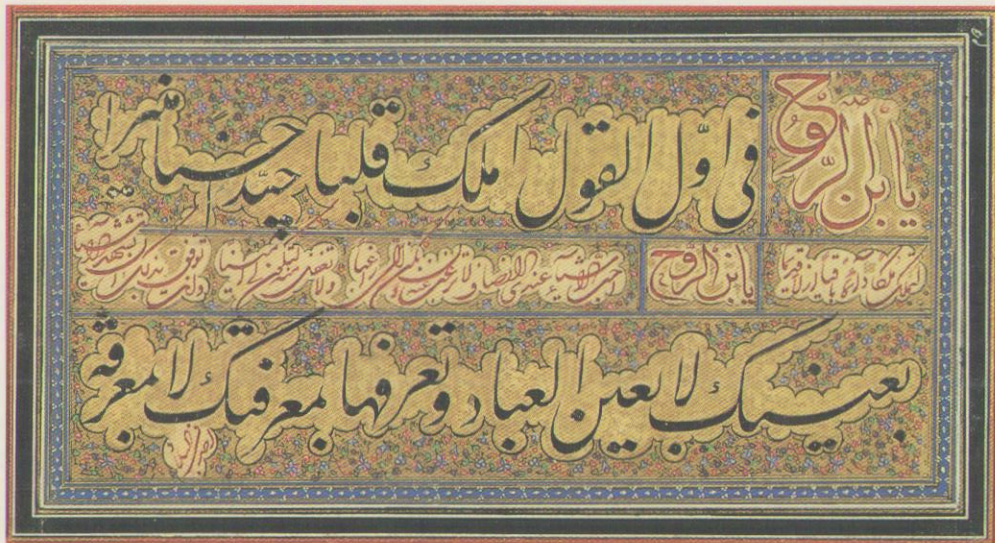 يا ابن الرّوح
في اوّل القول املك قلبا جيّدا حسنا منيرا
لتملك ملكا دائما باقيا ازلا قديما
يا ابن الرّوح
احبّ الاشياء عندي الانصاف لا ترغب عنه ان تكن اليّ راغبا ولا تغفل منه لتكون لي امينا وانت توفق بذلك ان تشاهد الاشياء
بعينك لا بعين العباد وتعرفها بمعرفتك لا بمعرفة